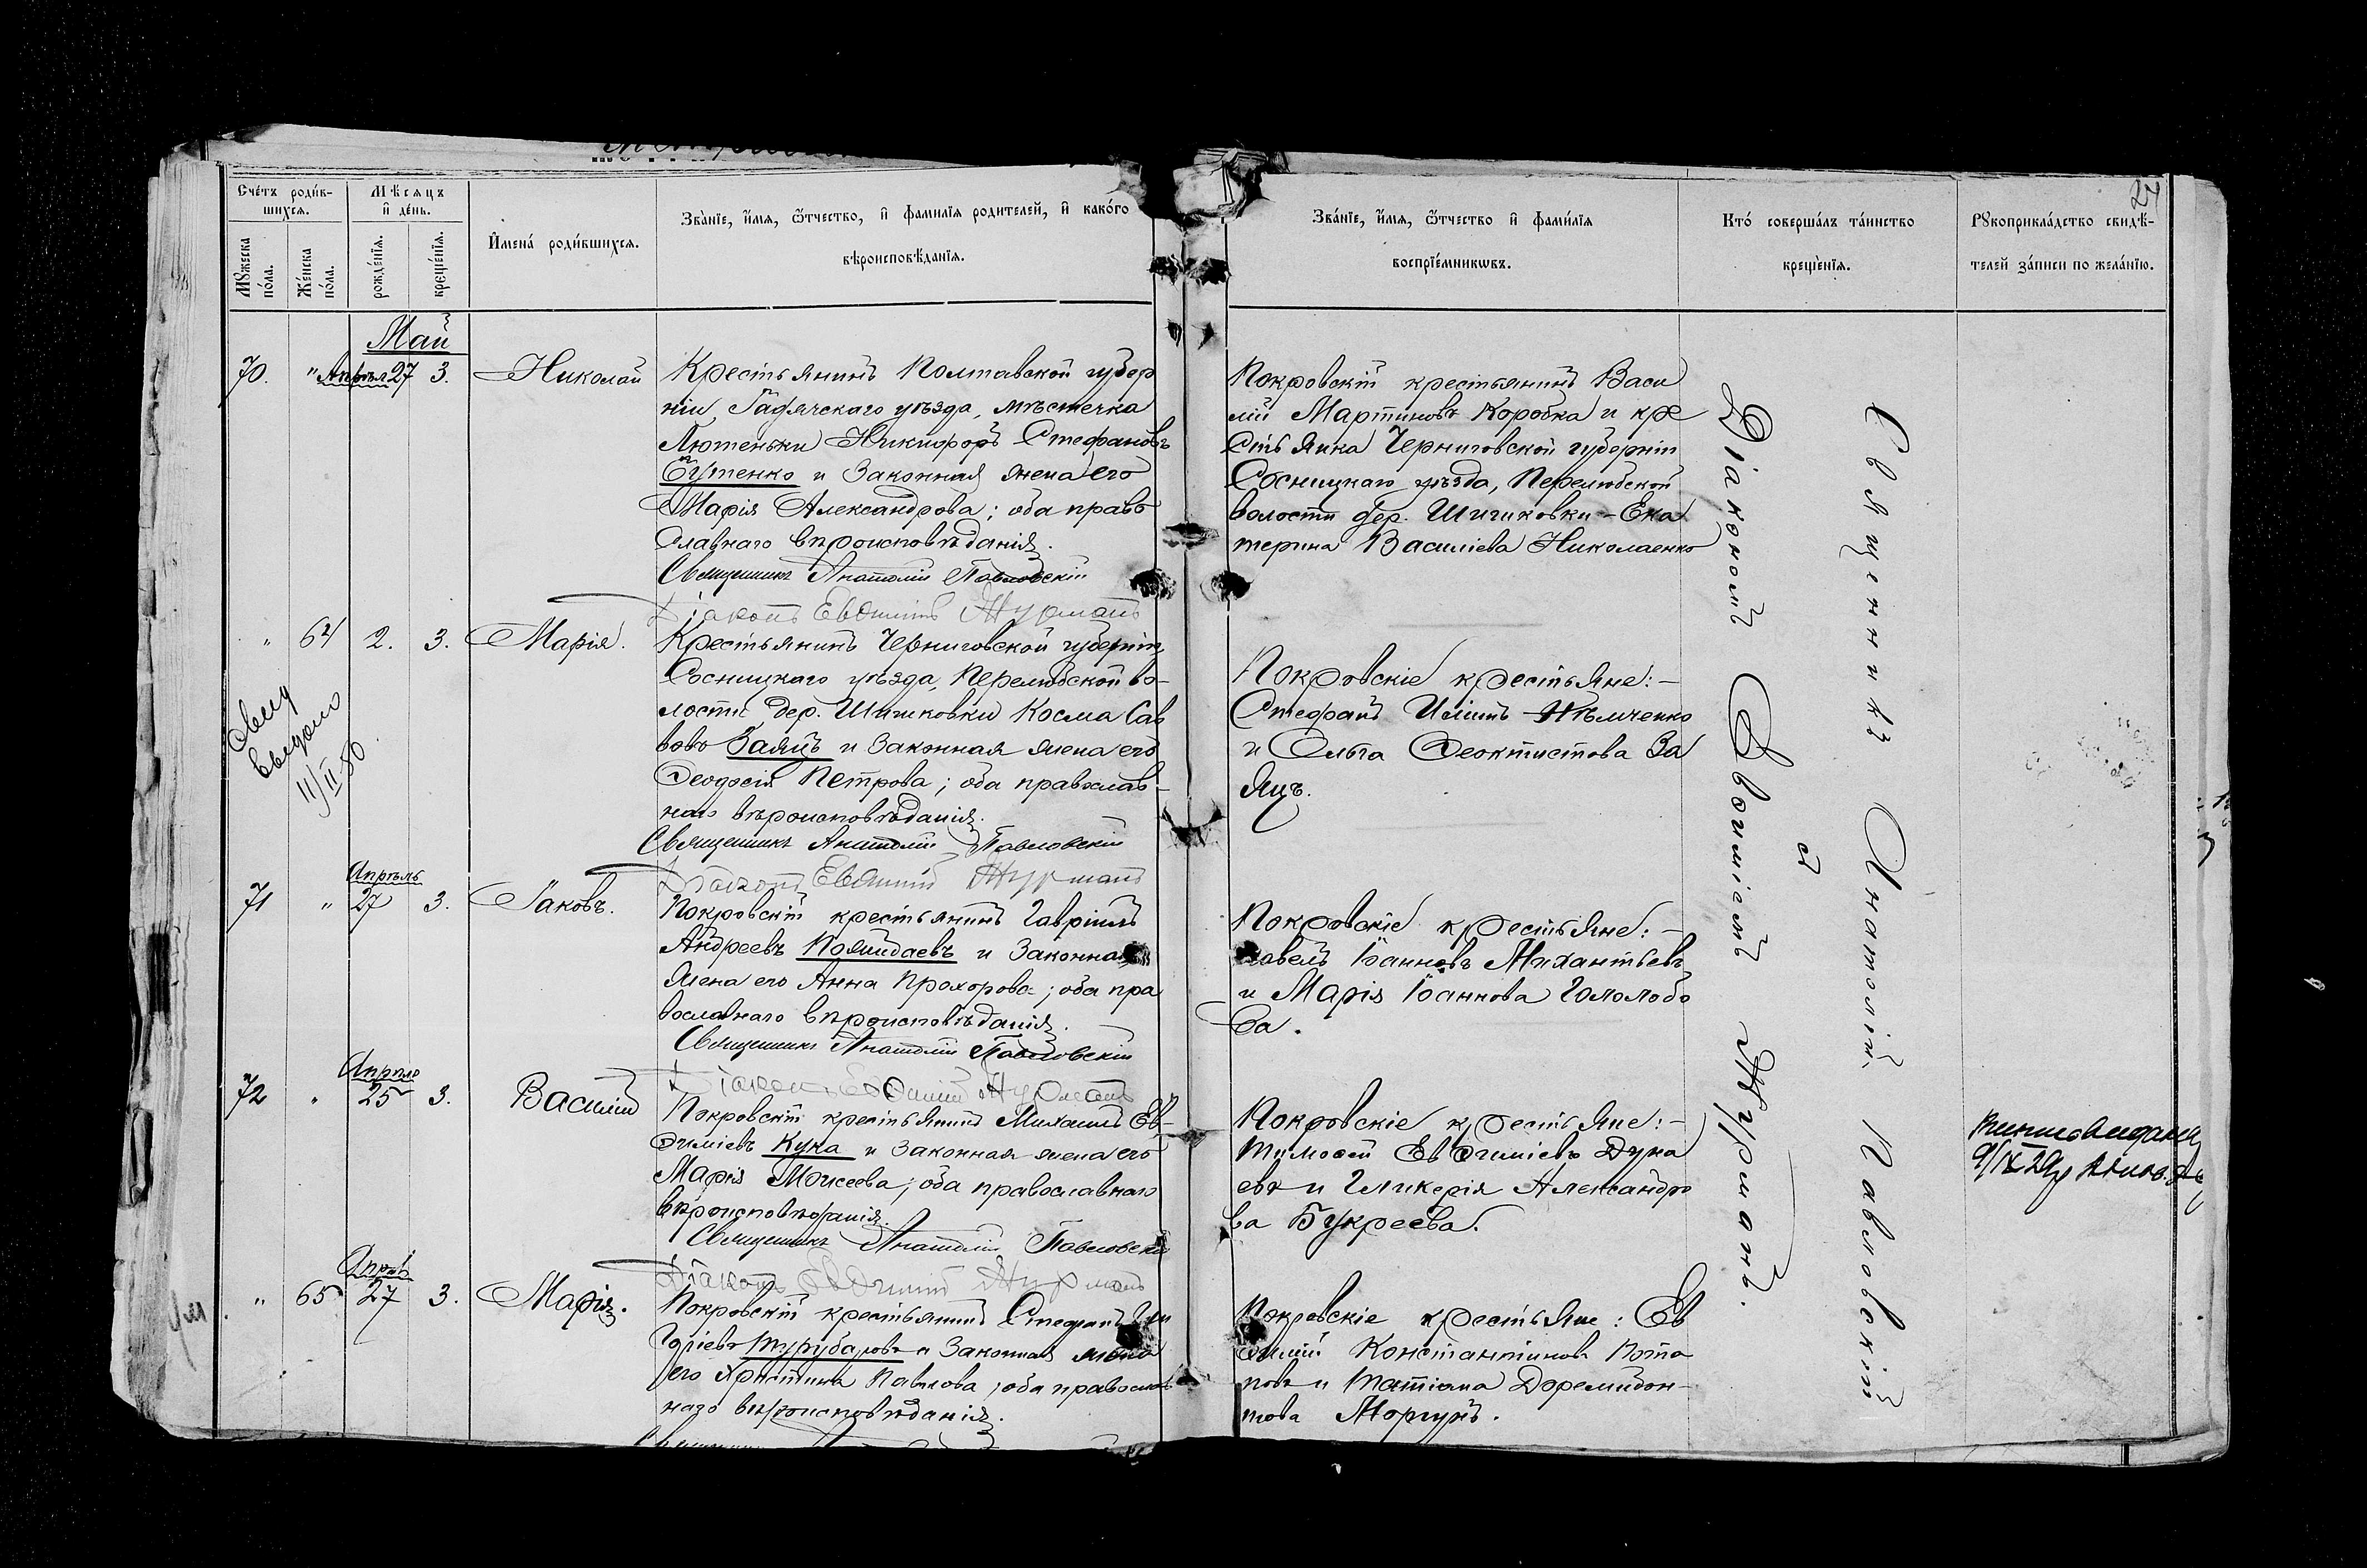 27
Счетъ родив-
шихся.
Мѣсяцъ
и день.
Имена родившихся.
Званіе, имя, отчество, и фамилія родителей, и какого
вѣроисповѣданія.
Званіе, имя, отчество и фамилія
воспріемниковъ.
Кто совершалъ таинство
крещенія.
Рукоприкладство свидѣ-
телей записи по желанію.
Мужеска
пола.
Женска
пола.
рожденія.
крещенія.
Май
70. " Апрѣл 27 3. Николай
Крестьянинъ Полтавской губер
ніи, Гадячскаго уѣзда, мѣстечка
Лютеньки Никифоръ Стефановъ
Бутенко и законная жена его
Марія Александрова; оба право
славнаго вѣроисповѣданія.
Священникъ Анатолій Павловскій
Діаконъ Евѳимій Журманъ
Покровскій крестьянинъ Васи
лій Мартиновъ Коробка и кре
стьянка Черниговской губерніи
Сосницкаго уѣзда, Перелюбской
волости дер. Шишковки - Ека
терина Василіева Николаенко
" 64 2. 3. Марія.
Крестьянинъ Черниговской губерніи,
Сосницкаго уѣзда, Перелюбской во-
лости дер. Шишковки Косма Сав
вовъ Заяцъ и законная жена его
Ѳеодосія Петрова; оба православ-
наго вѣроисповѣданія.
Священникъ Анатолій Павловскій
Діаконъ Евѳимій Журманъ
Покровскіе крестьяне: -
Стефанъ Иліинъ Нѣмченко
и Ольга Ѳеоктистова За
яцъ.
выдано
11/II-50
Апрѣль
71 " 27 3. Іаковъ.
Покровскій крестьянинъ Гавріилъ
Андреевъ Пояпидаевъ и законная
жена его Анна Прохорова; оба пра
вославнаго вѣроисповѣданія.
Священникъ Анатолій Павловскій
Діаконъ Евѳимій Журманъ
Покровскіе крестьяне: -
Павелъ Іоанновъ Михантьевъ
и Марія Іоаннова Гололобо
ва.
Апрѣль
72 " 25 3. Василій
Покровскій крестьянинъ Михаилъ Ев-
ѳиміевъ Кука и законная жена его
Марія Моисеева; оба православнаго
вѣроисповѣданія.
Священникъ Анатолій Павловскій
Діаконъ Евѳимій Журманъ
Покровскіе крестьяне: -
Тимоѳей Евѳиміевъ Дуна
евъ и Гликерія Александро
ва Букреева.
Апрѣл
" 65 27 3. Марія.
Покровскій крестьянинъ Стефанъ Гри
горіевъ Турубаровъ и законная жена
его Христина Павлова; оба православ
наго вѣроисповѣданія.
Покровскіе крестьяне: Ев
ѳимій Константиновъ Пота
повъ и Татіана Доремидон-
това Моргунъ.
Священникъ Анатолій Павловскій
и
Діаконъ Евѳиміемъ Журманъ.